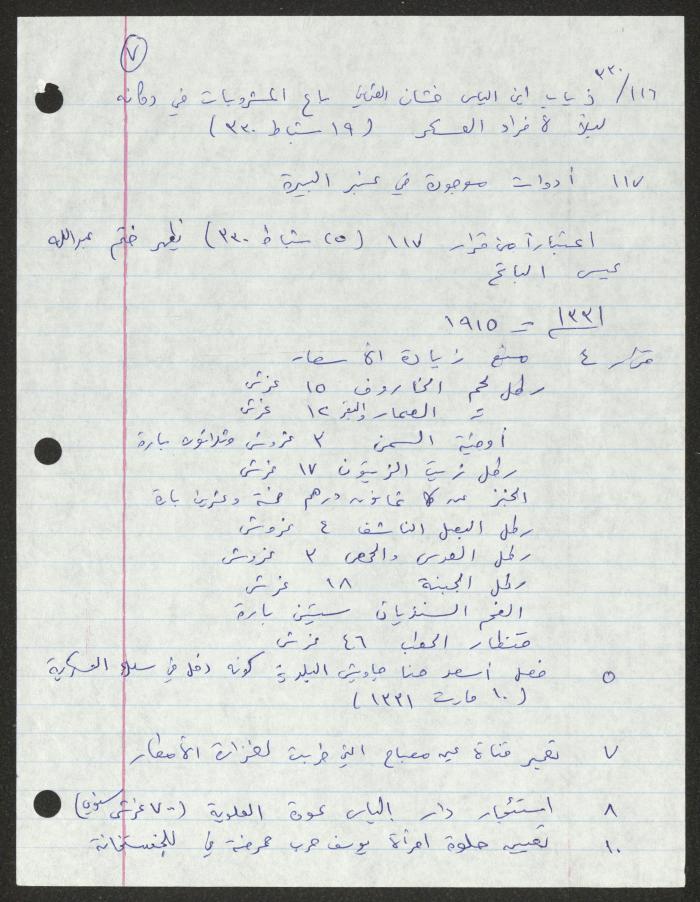 ٧
١١٦/٣٣٠ ذياب ابن الياس باع المشروبات في دكانه
ليلاً لأفراد العسكر (١٩ شباط ٣٣٠)
١١٧ أدوات موجودة في عنبر البيرة
اعتباراً من قرار ١١٧ (٢٥ شباط ٣٣٠) يظهر ختم عبدالله
عيسى
١٣٣١ = ١٩١٥
قرار ٤ منع زيادة الأسعار
رطل لحم الخاروف ١٥ غرش
= والبقر ١٢ غرش
أوقية السمن ٣ غروش وثلاثون بارة
رطل زيت الزيتون ١٧ غرش
الخبز ثمانون درهم خمسة وعشرين بارة
رطل البصل الناشف ٤ غروش
رطل العدس والحمص ٣ غروش
رطل الجبنة ١٨ غرش
الفحم السنديان ستين بارة
قنطار الحطب ٤٦ غرش
٥ فصل أسعد حنا جاويش البلدية كونه دخل في سلك العسكرية
(١٠ مارت ١٣٣١)
٧ تعمير قناة عين مصباح التي خربت لغزارة الأمطار
٨ استئجار دار الياس عودة العلوية (٧٠٠ غرش سنوي)
١٠ تعيين حلوة امرأة يوسف حرب ممرضة في للخستخانة